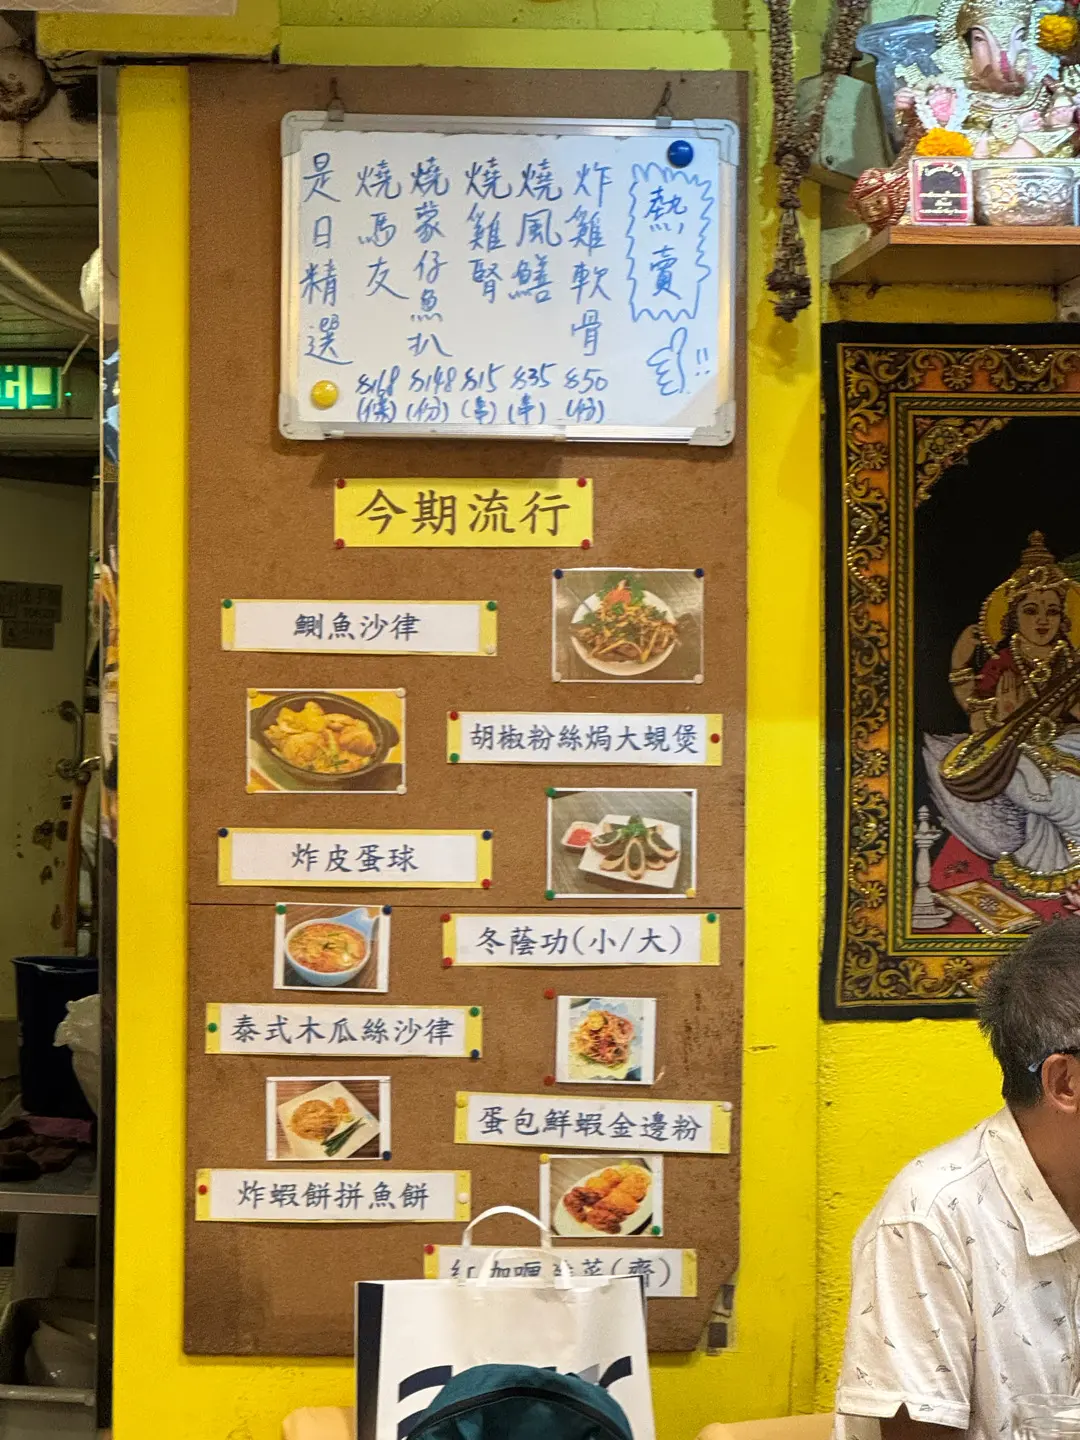 熱賣!!
炸雞軟骨 $50 (份)
燒風鱔 $35 (串)
燒雞腎 $15 (串)
燒蒙仔魚扒 $148 (份)
燒馬友 $168 (條)
是日精選
今期流行
鰂魚沙律
胡椒粉絲焗大蜆煲
炸皮蛋球
冬蔭功(小/大)
泰式木瓜絲沙律
蛋包鮮蝦金邊粉
炸蝦餅拼魚餅
紅咖喱雜菜(齋)